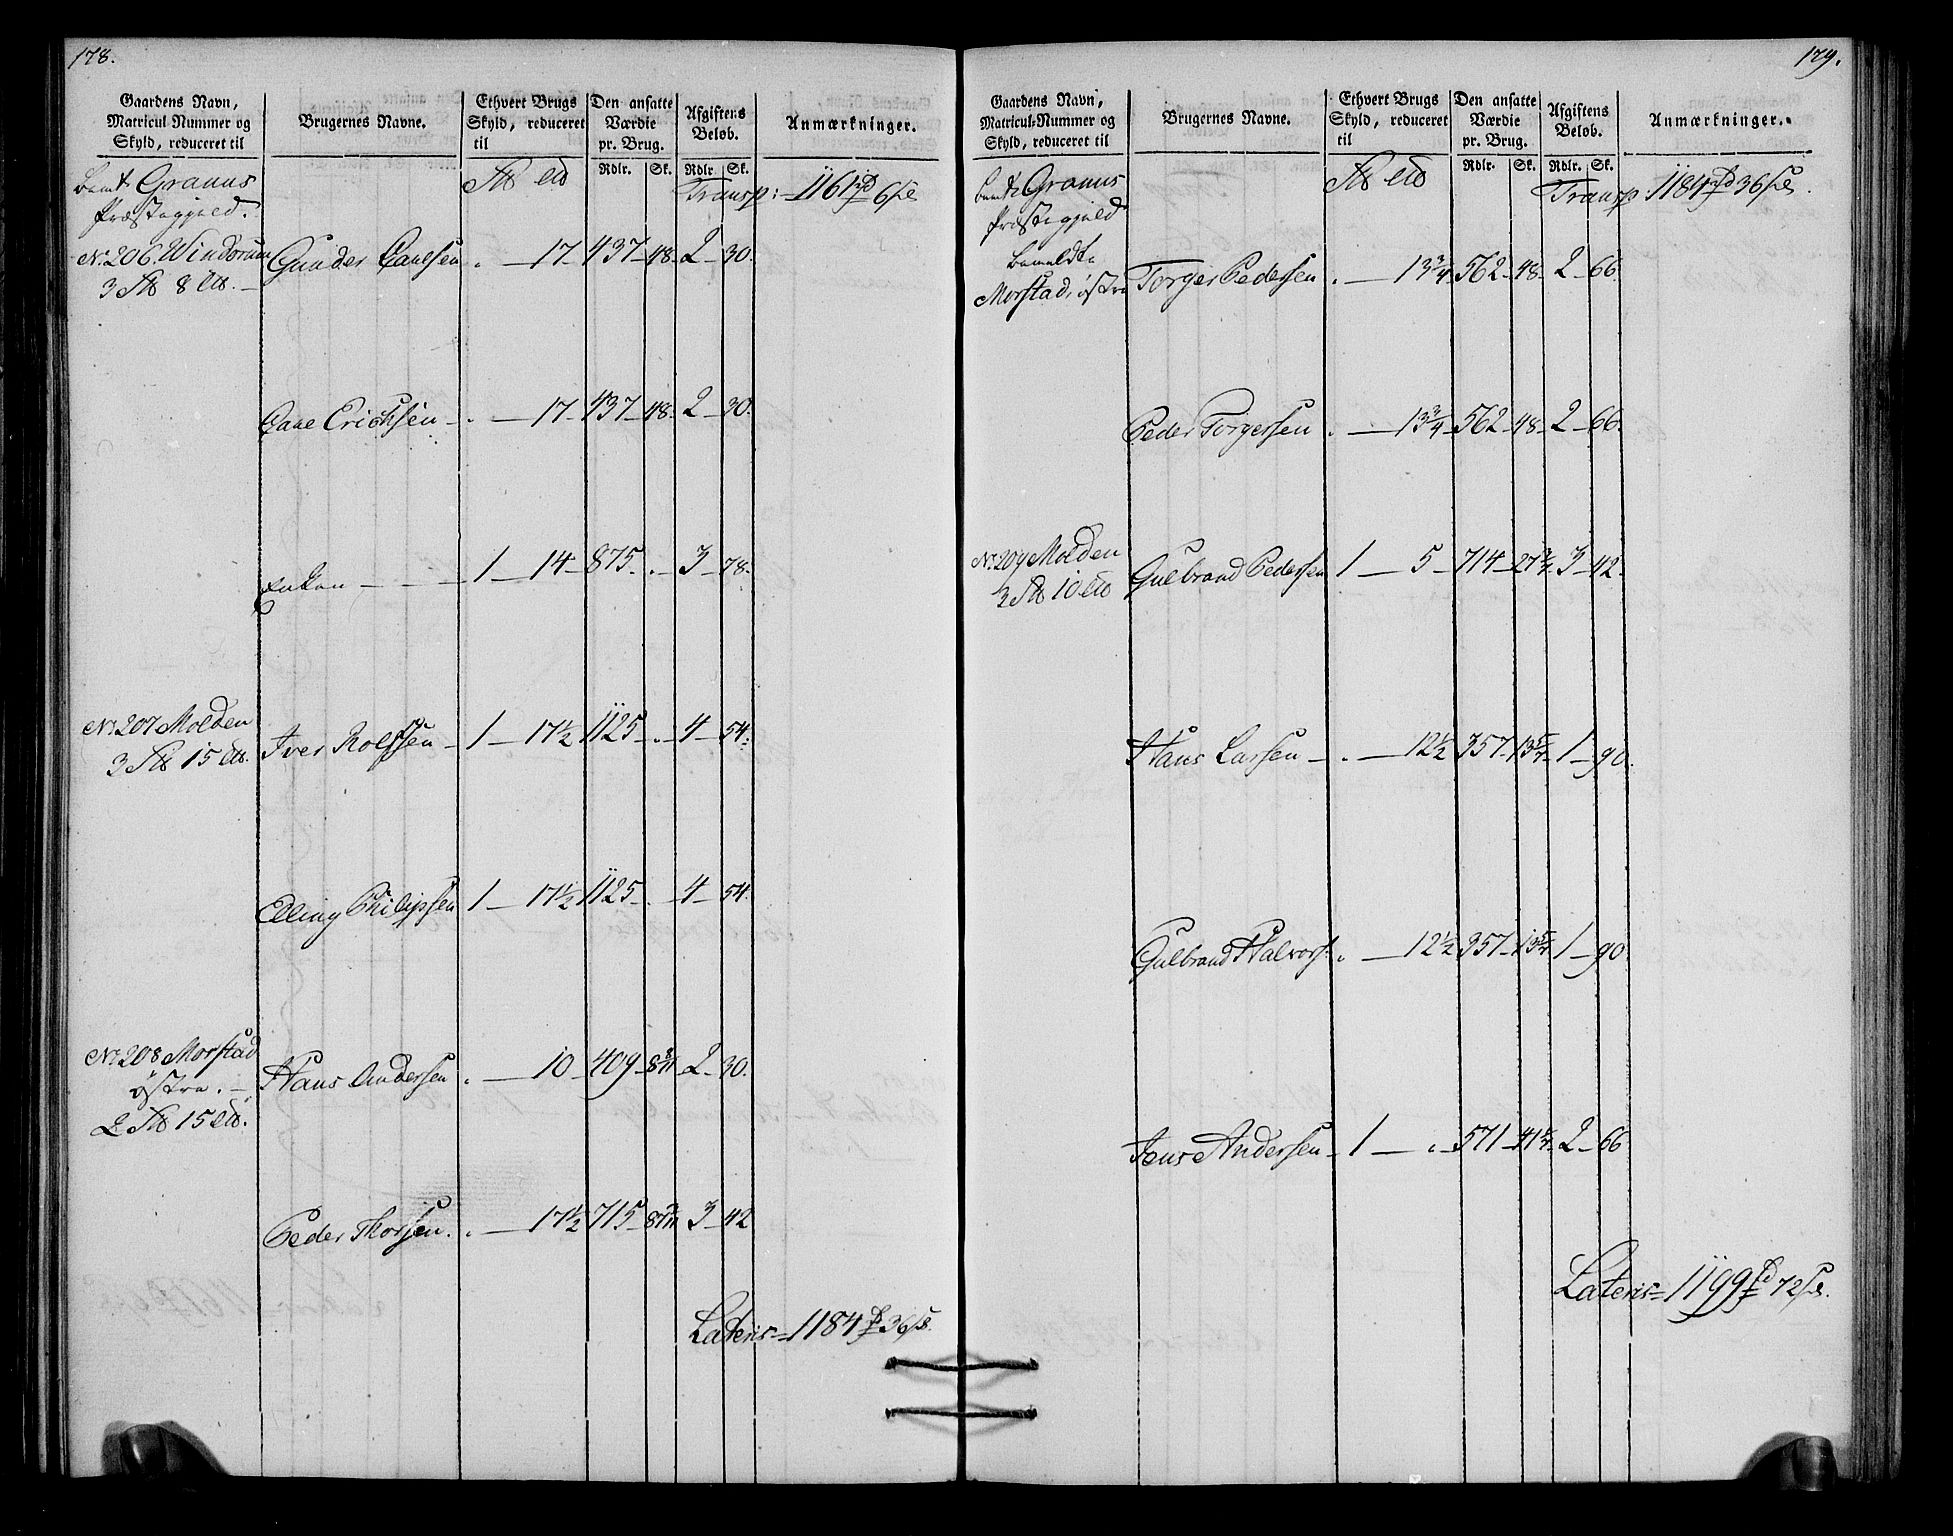 178.
Gaardens Navn, Matricul-Nummer og Skyld, reduceret til | Brugernes Navne. | Ethvert Brugs Skyld, reduceret til | Den ansatte Værdie pr. Brug. | Afgiftens Beløb. | Anmærkninger.
Rdlr. | Sk. | Rdlr. | Sk.
Transp: 1161 rd 6 sk
bemte Granns
Præstegjeld.
No 206. Windorum Gunder Paulsen . — 17 — 437 — 48 — 2 — 30.
3 Sk℔ 8 L℔. —
Paul Erichsen — . — 17 — 437 — 48 — 2 — 30.
Enken — — 1 — 14 — 875 — . — 3 — 78.
No 207 Molden Iver Rolfsen — 1 — 17½ 1125 — . — 4 — 54.
3 Sk℔ 15 L℔.
Elling Philipsen 1 — 17½ 1125 — . — 4 — 54.
No 208 Morstad Hans Andersen . — 10 — 409 — 8 8/11 2 — 30.
østre. —
2 Sk℔ 15 L℔.
Peder Thorsen. . — 17½ 715 — 87 3/11 3 — 42
Lateris = 1184 rd 36 sk.
179.
Gaardens Navn, Matricul-Nummer og Skyld, reduceret til | Brugernes Navne. | Ethvert Brugs Skyld, reduceret til | Den ansatte Værdie pr. Brug. | Afgiftens Beløb. | Anmærkninger.
Rdlr. | Sk. | Rdlr. | Sk.
Transp: 1184 rd 36 sk.
bemte Granns
Præstegjeld
bemeldte
Morstad, østre Torger Pedersen . — 13¾ 562 — 48 — 2 — 66.
Peder Torgersen . — 13¾ 562 — 48 — 2 — 66.
No 209 Molden Gulbrand Pedersen 1 — 5 — 714 — 27 3/7 3 — 42.
3 Sk℔ 10 L℔
Hans Larsen — . — 12½ 357 — 13 5/7 1 — 90.
Gulbrand Halvors: . — 12½ 357 — 13 5/7 1 — 90.
Jens Andersen — 1 — " — 571 — 41 1/7 2 — 66
Lateris = 1199 rd 72 sk.